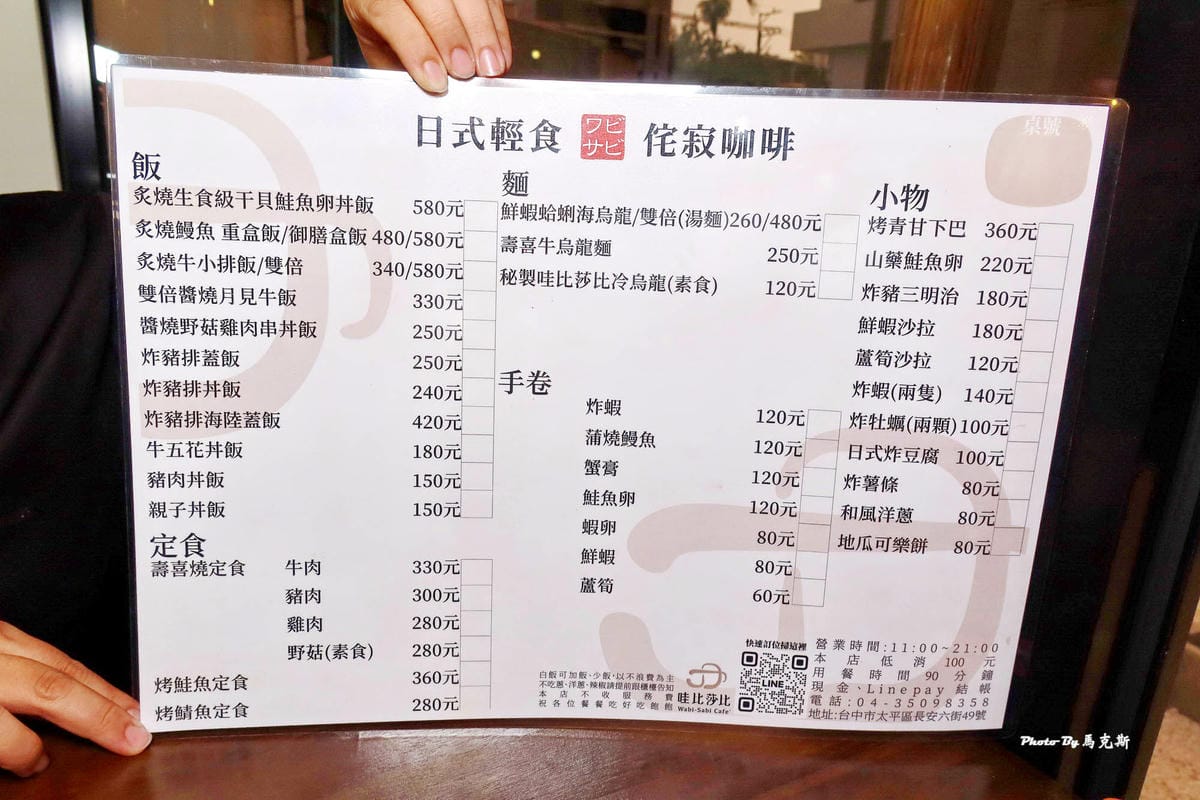 桌號
日式輕食 ワビサビ 侘寂咖啡
飯
炙燒生食級干貝鮭魚卵丼飯 580元
炙燒鰻魚 重盒飯/御膳盒飯 480/580元
炙燒牛小排飯/雙倍 340/580元
雙倍醬燒月見牛飯 330元
醬燒野菇雞肉串丼飯 250元
炸豬排蓋飯 250元
炸豬排丼飯 240元
炸豬排海陸蓋飯 420元
牛五花丼飯 180元
豬肉丼飯 150元
親子丼飯 150元
定食
壽喜燒定食 牛肉 330元
豬肉 300元
雞肉 280元
野菇(素食) 280元
烤鮭魚定食 360元
烤鯖魚定食 280元
麵
鮮蝦蛤蜊海烏龍/雙倍(湯麵)260/480元
壽喜牛烏龍麵 250元
秘製哇比莎比冷烏龍(素食) 120元
手卷
炸蝦 120元
蒲燒鰻魚 120元
蟹膏 120元
鮭魚卵 120元
蝦卵 80元
鮮蝦 80元
蘆筍 60元
小物
烤青甘下巴 360元
山藥鮭魚卵 220元
炸豬三明治 180元
鮮蝦沙拉 180元
蘆筍沙拉 120元
炸蝦(兩隻) 140元
炸牡蠣(兩顆)100元
日式炸豆腐 100元
炸薯條 80元
和風洋蔥 80元
地瓜可樂餅 80元
白飯可加飯、少飯,以不浪費為主
不吃蔥、洋蔥、辣椒請提前跟櫃檯告知
本店不收服務費
祝各位餐餐吃好吃飽飽
哇比莎比
Wabi-Sabi Cafe'
快速訂位掃這裡
LINE
營業時間:11:00~21:00
本店低消100元
用餐時間90分鐘
現金、Linepay結帳
電話:04-35098358
地址:台中市太平區長安六街49號
Photo By 馬克斯